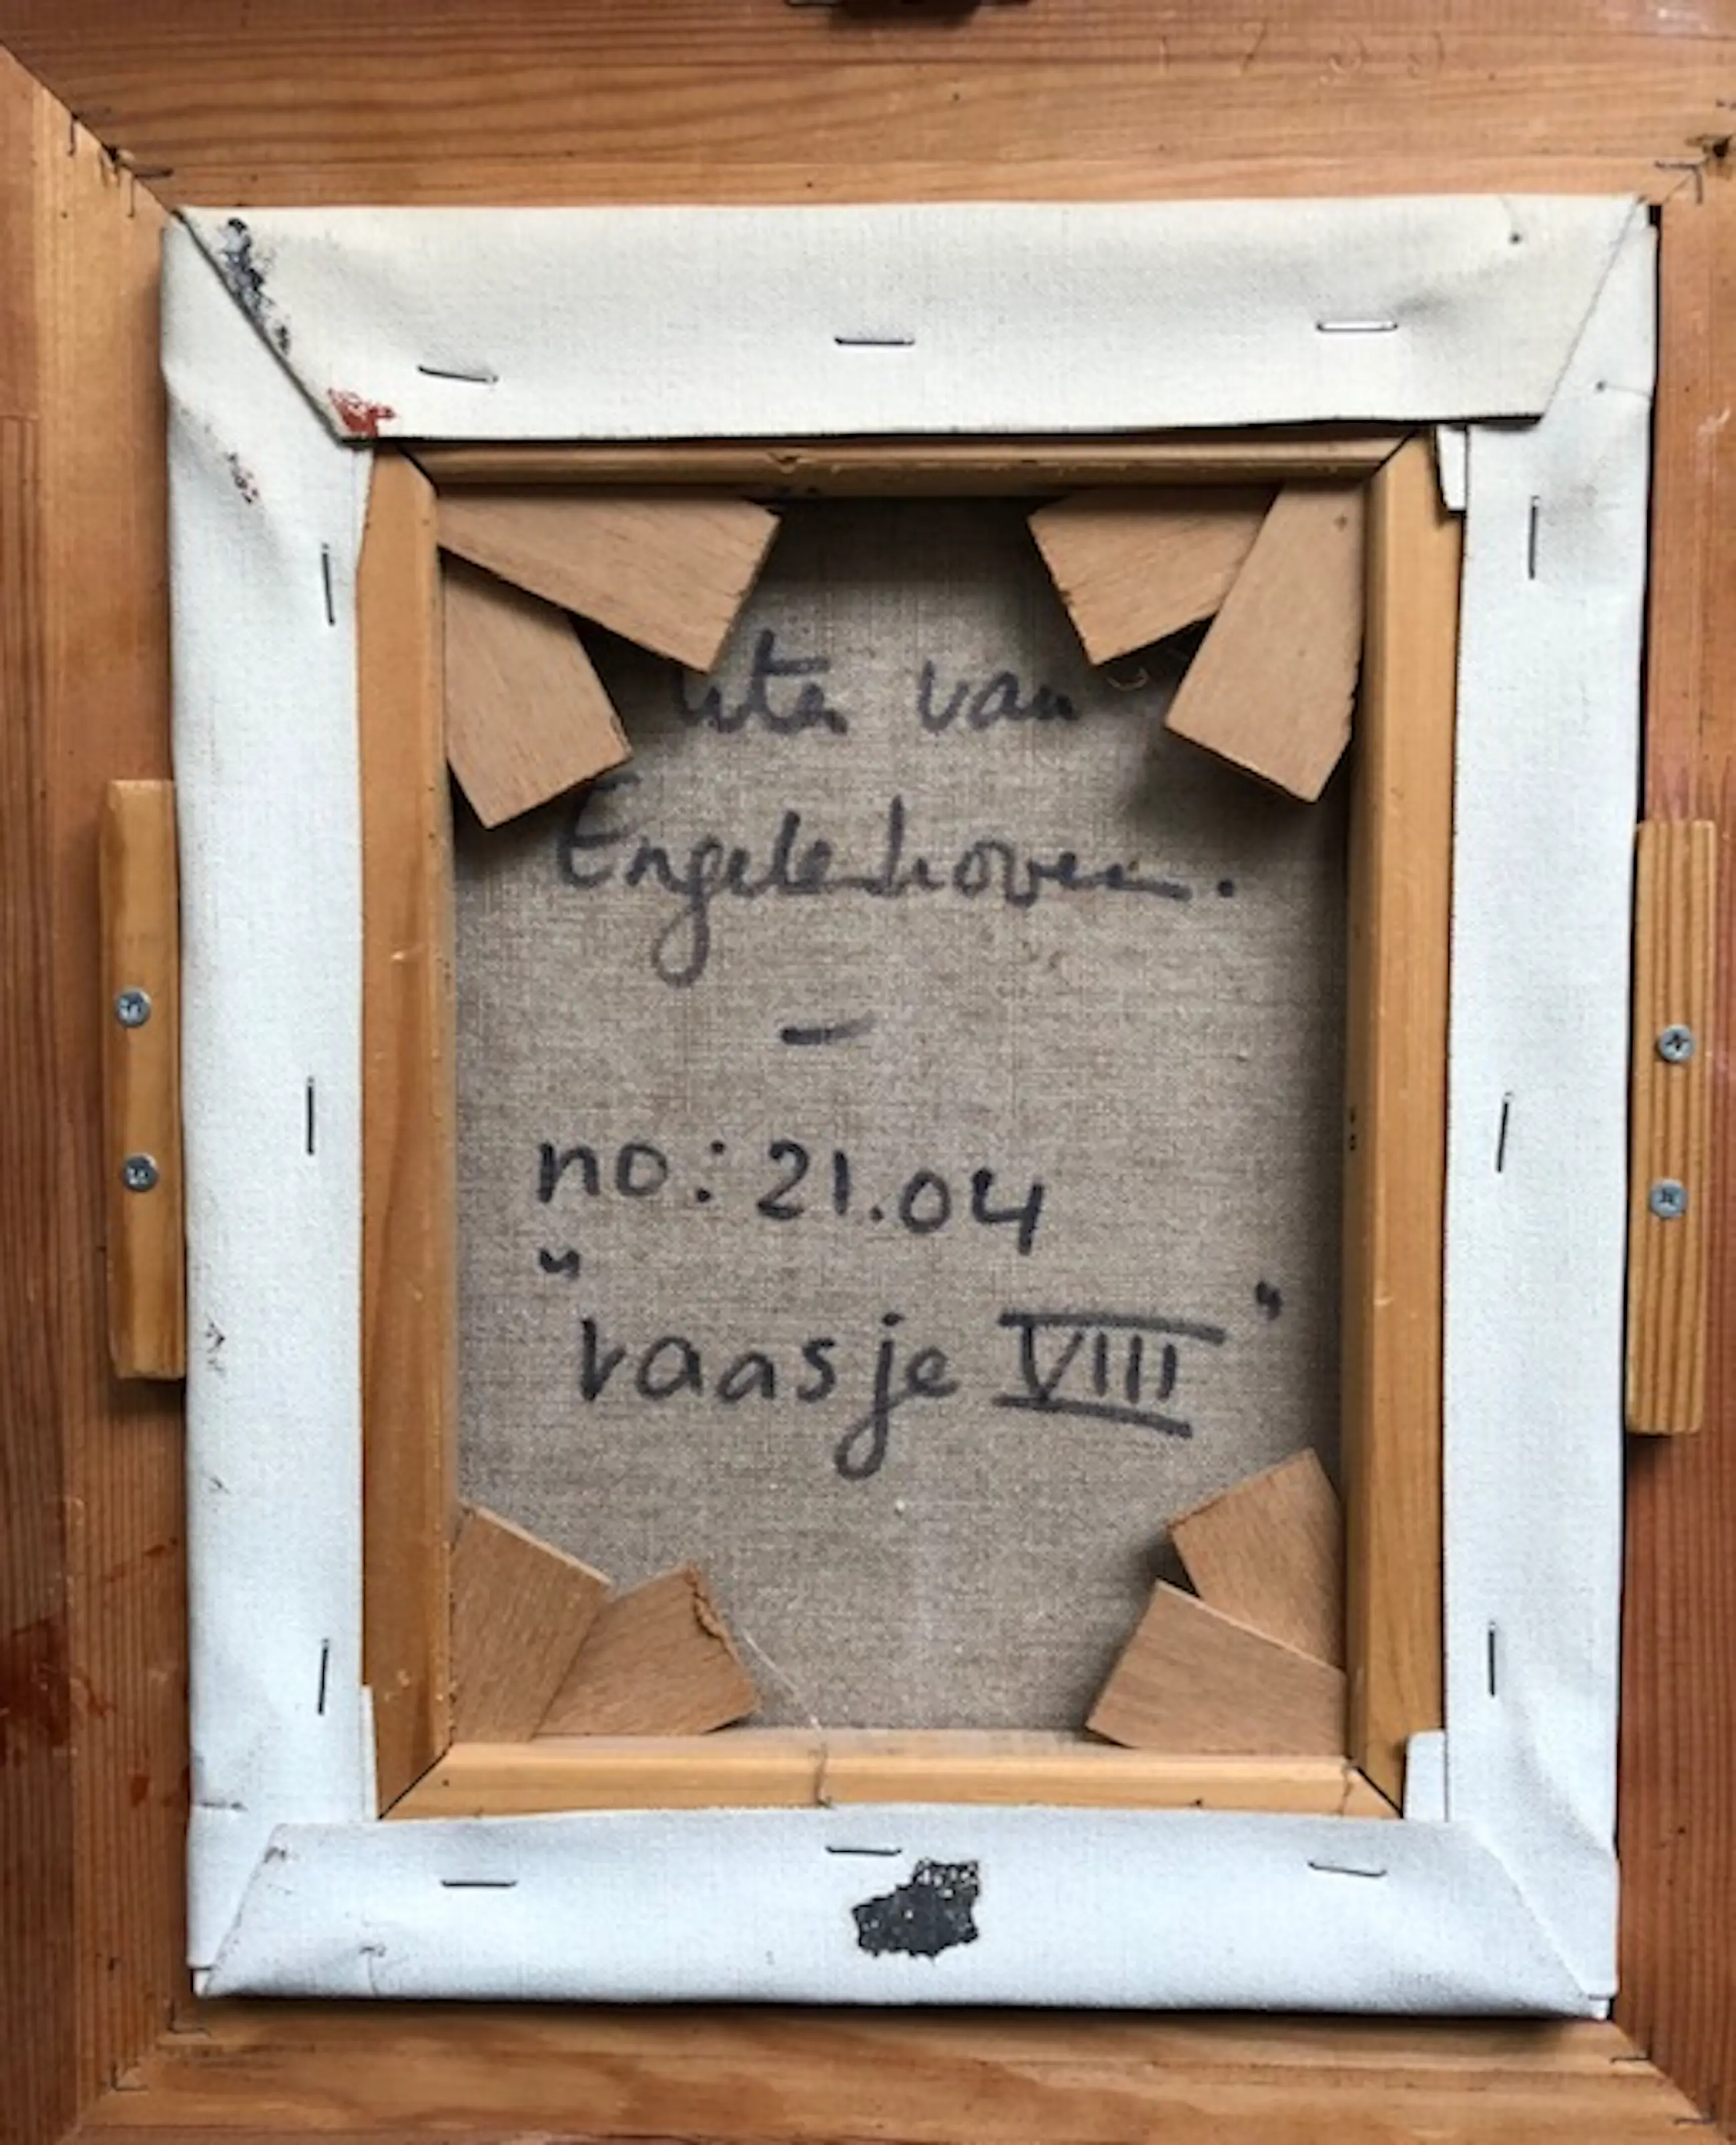 van
Engelenhoven.
—
no.: 21.04
"vaasje VIII"